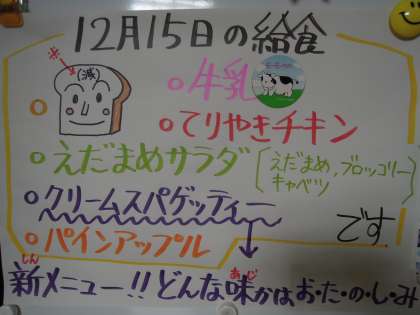 12月15日の給食
(減)
牛乳
てりやきチキン
えだまめサラダ
えだまめ,ブロッコリー
キャベツ
クリームスパゲッティー
パインアップル
です
しん
新メニュー!!どんな味かはお・た・の・し・み
あじ